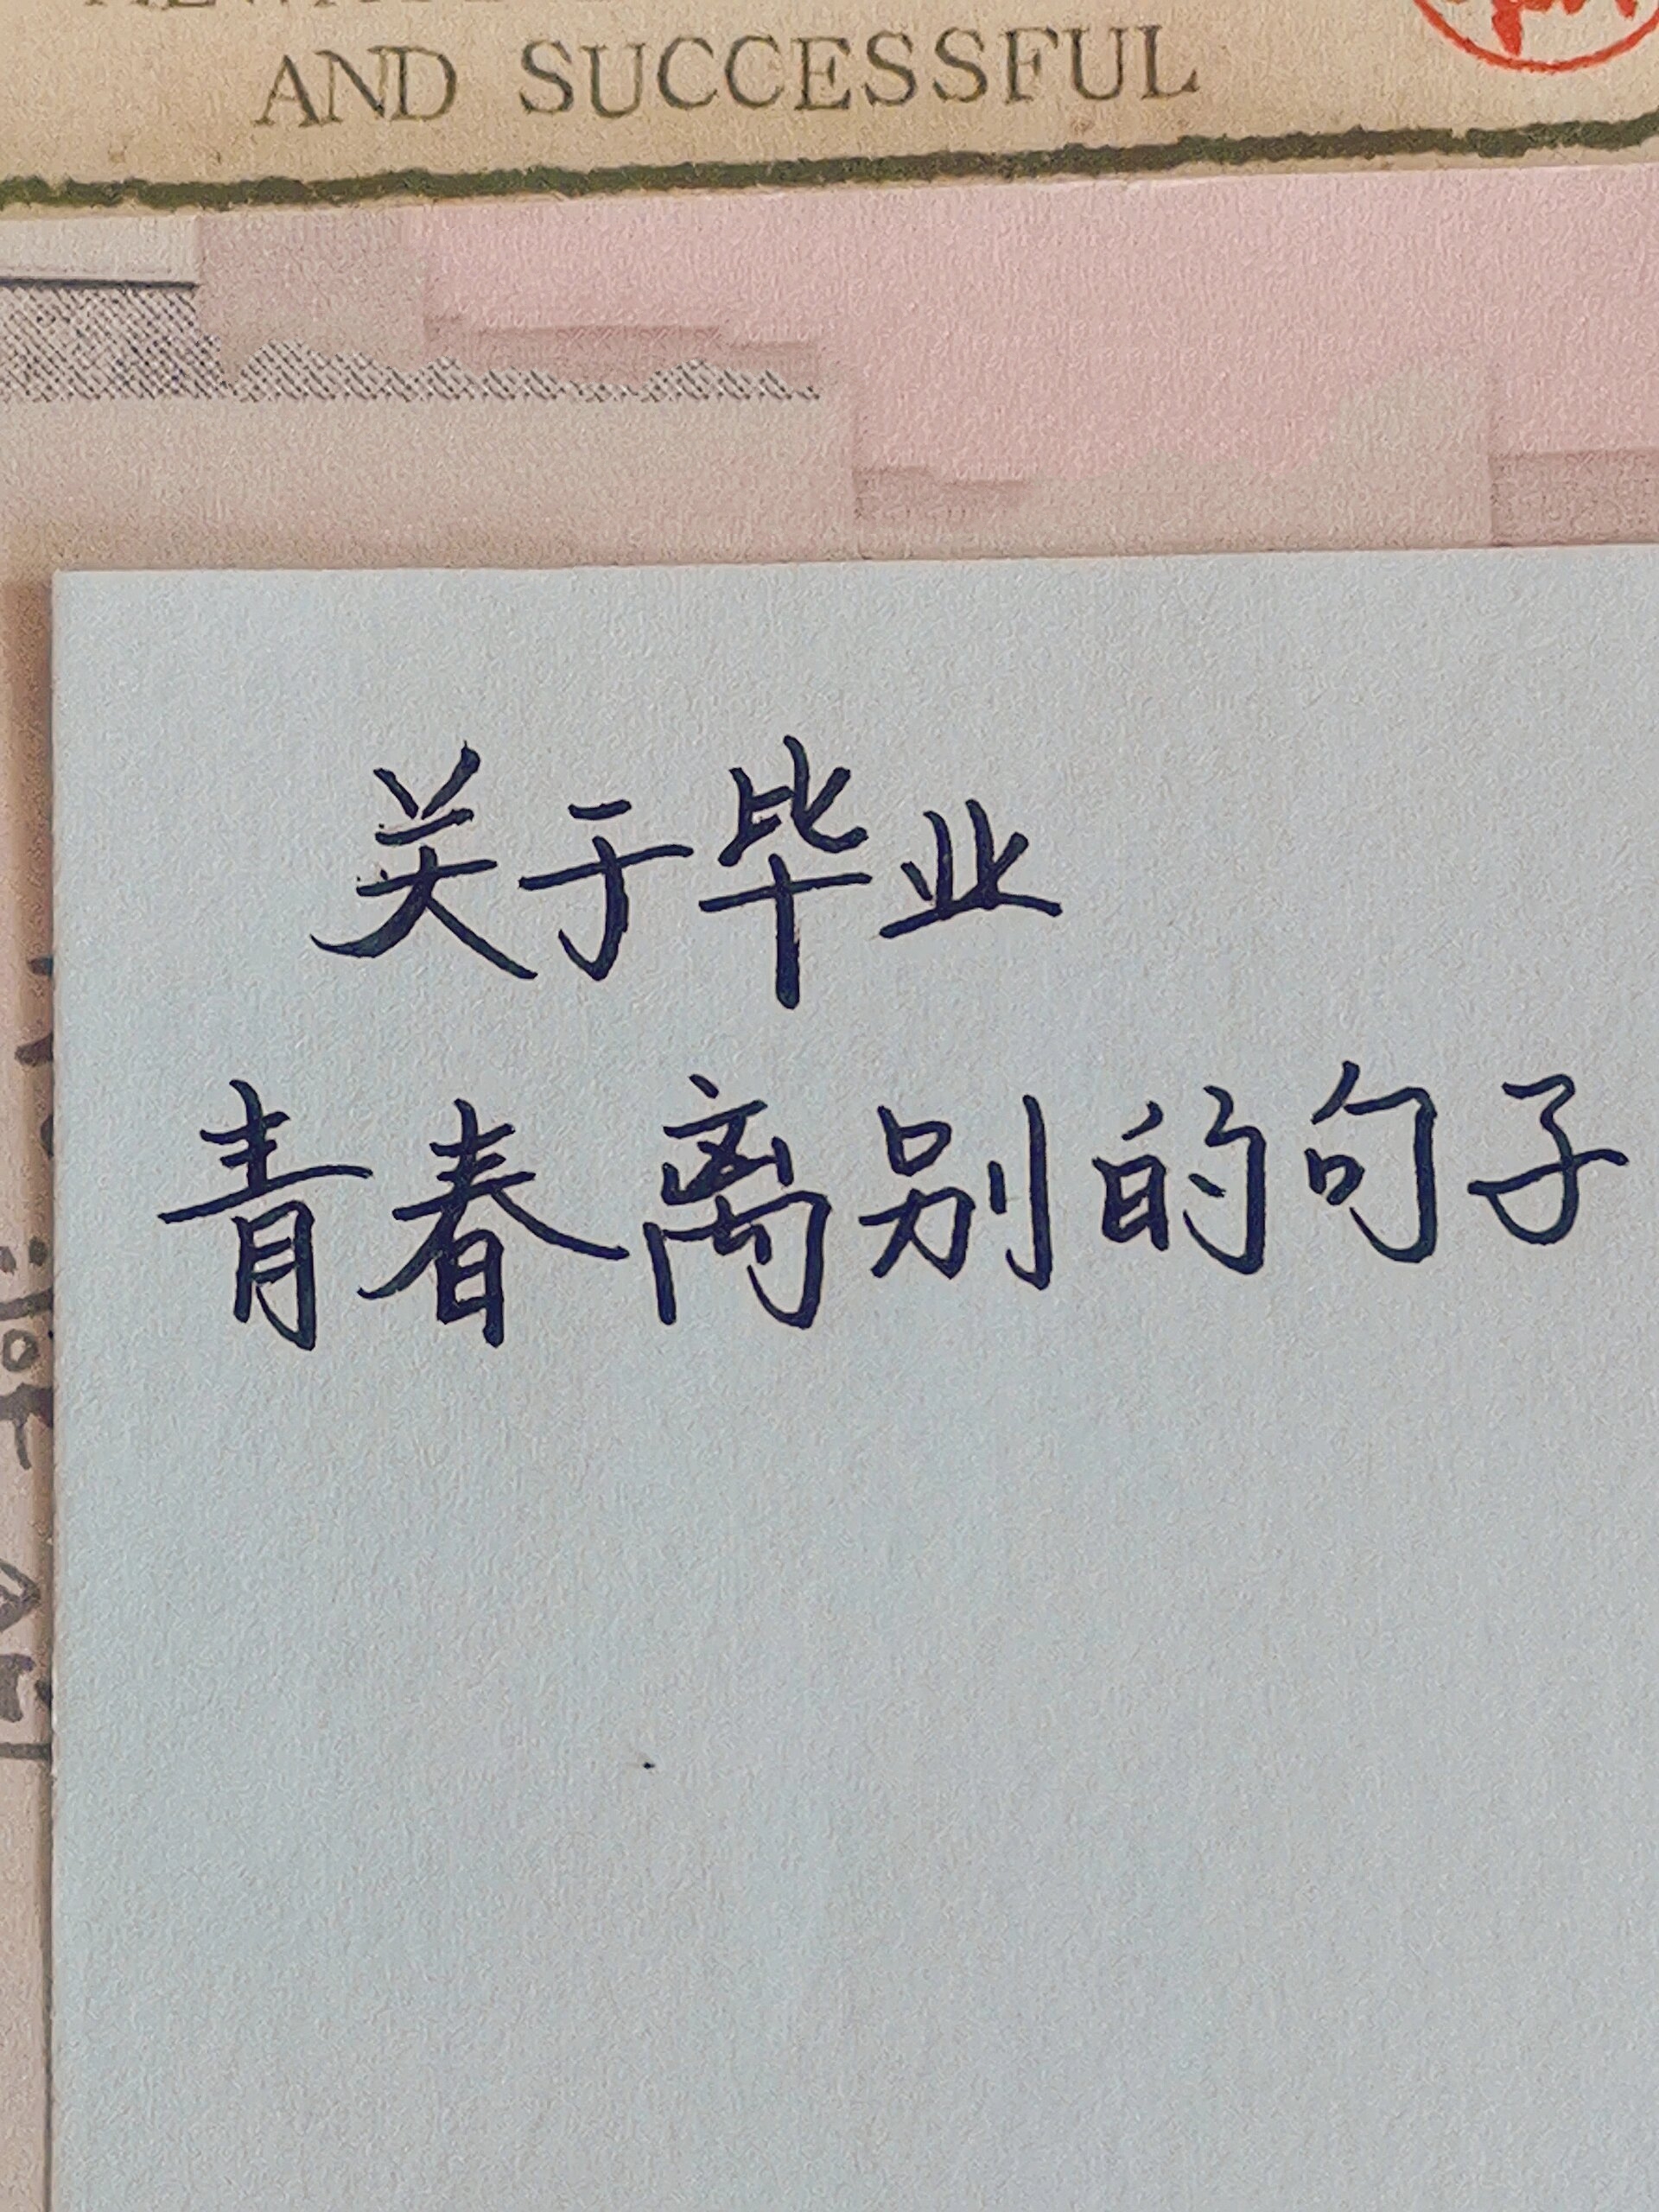 AND SUCCESSFUL
关于毕业
青春离别的句子